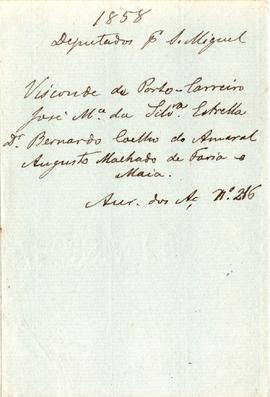 1858
Deputados p. S. Miguel
Visconde de Porto-Carreiro
José Mª. da Silvª. Estrella
Dr. Bernardo Coelho do Amaral
Augusto Machado de Faria e
Maia.
Aur. dos Aç. Nº. 216